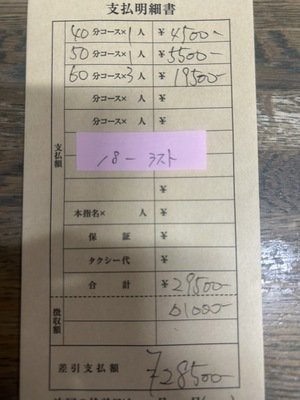 支払明細書
40 分コース× 1 人 ¥ 4500-
50 分コース× 1 人 ¥ 5500-
60 分コース× 3 人 ¥ 19500-
分コース× 人 ¥
分コース× 人 ¥
支払額
18-ラスト
¥
本指名× 人 ¥
保証 ¥
タクシー代 ¥
合計 ¥ 29500-
徴収額 △1000-
差引支払額 ¥28500-